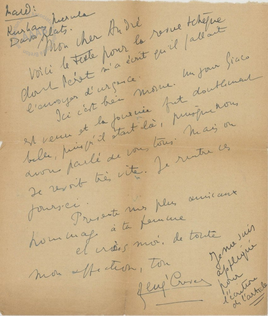 Mon cher André
Voici le texte pour la revue tchèque
dont Péret m'a écrit qu'il fallait
l'envoyer d'urgence.
Ici c'est bien morne. Un jour
est venu et la journée fut doublement
belle, puisqu'il était là, puisque nous
avons parlé de vous tous. Mais on
se revoit très vite. Je rentre ces
jours-ci.
Présente mes plus amicaux
hommages à ta femme
et crois moi, de toute
mon affection, ton
René Crevel
Je me suis
appliqué
pour
l'écriture
de l'article